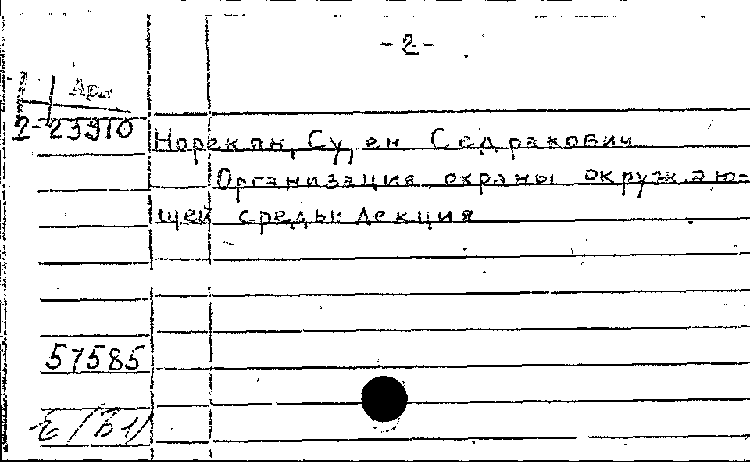 -2-
Арм
2-23910
Норекян, Сурен Седракович
Организация охраны окружаю-
щей среды: Лекция
57585